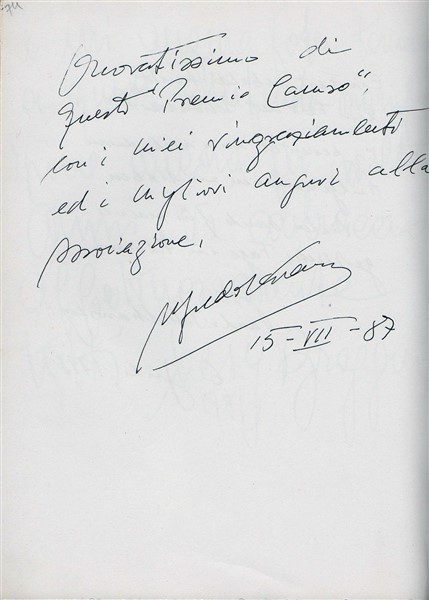 74
Onoratissimo di
questo "Premio Caruso",
con i miei ringraziamenti
ed i migliori auguri alla
Associazione,
Alfredo Kraus
15-VII-87